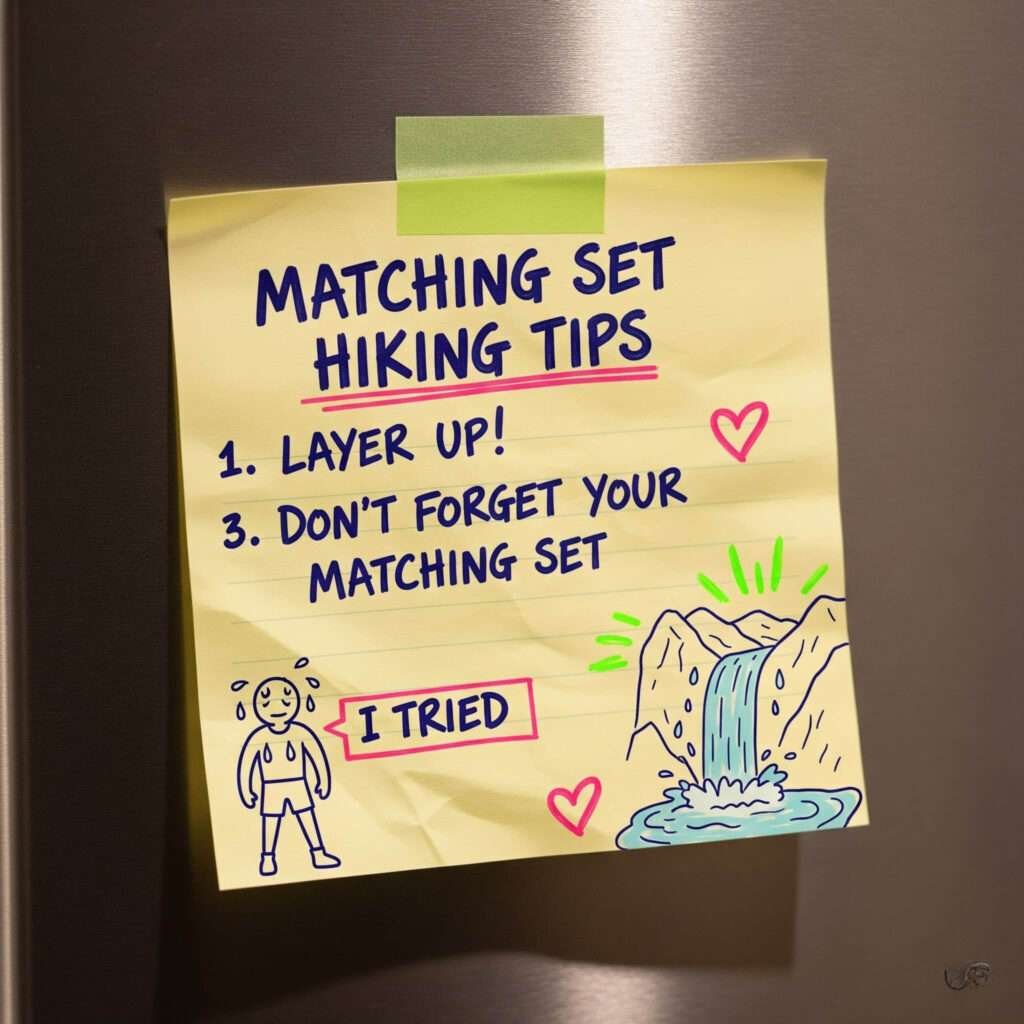 MATCHING SET
HIKING TIPS
1. LAYER UP!
3. DON'T FORGET YOUR
MATCHING SET
I TRIED